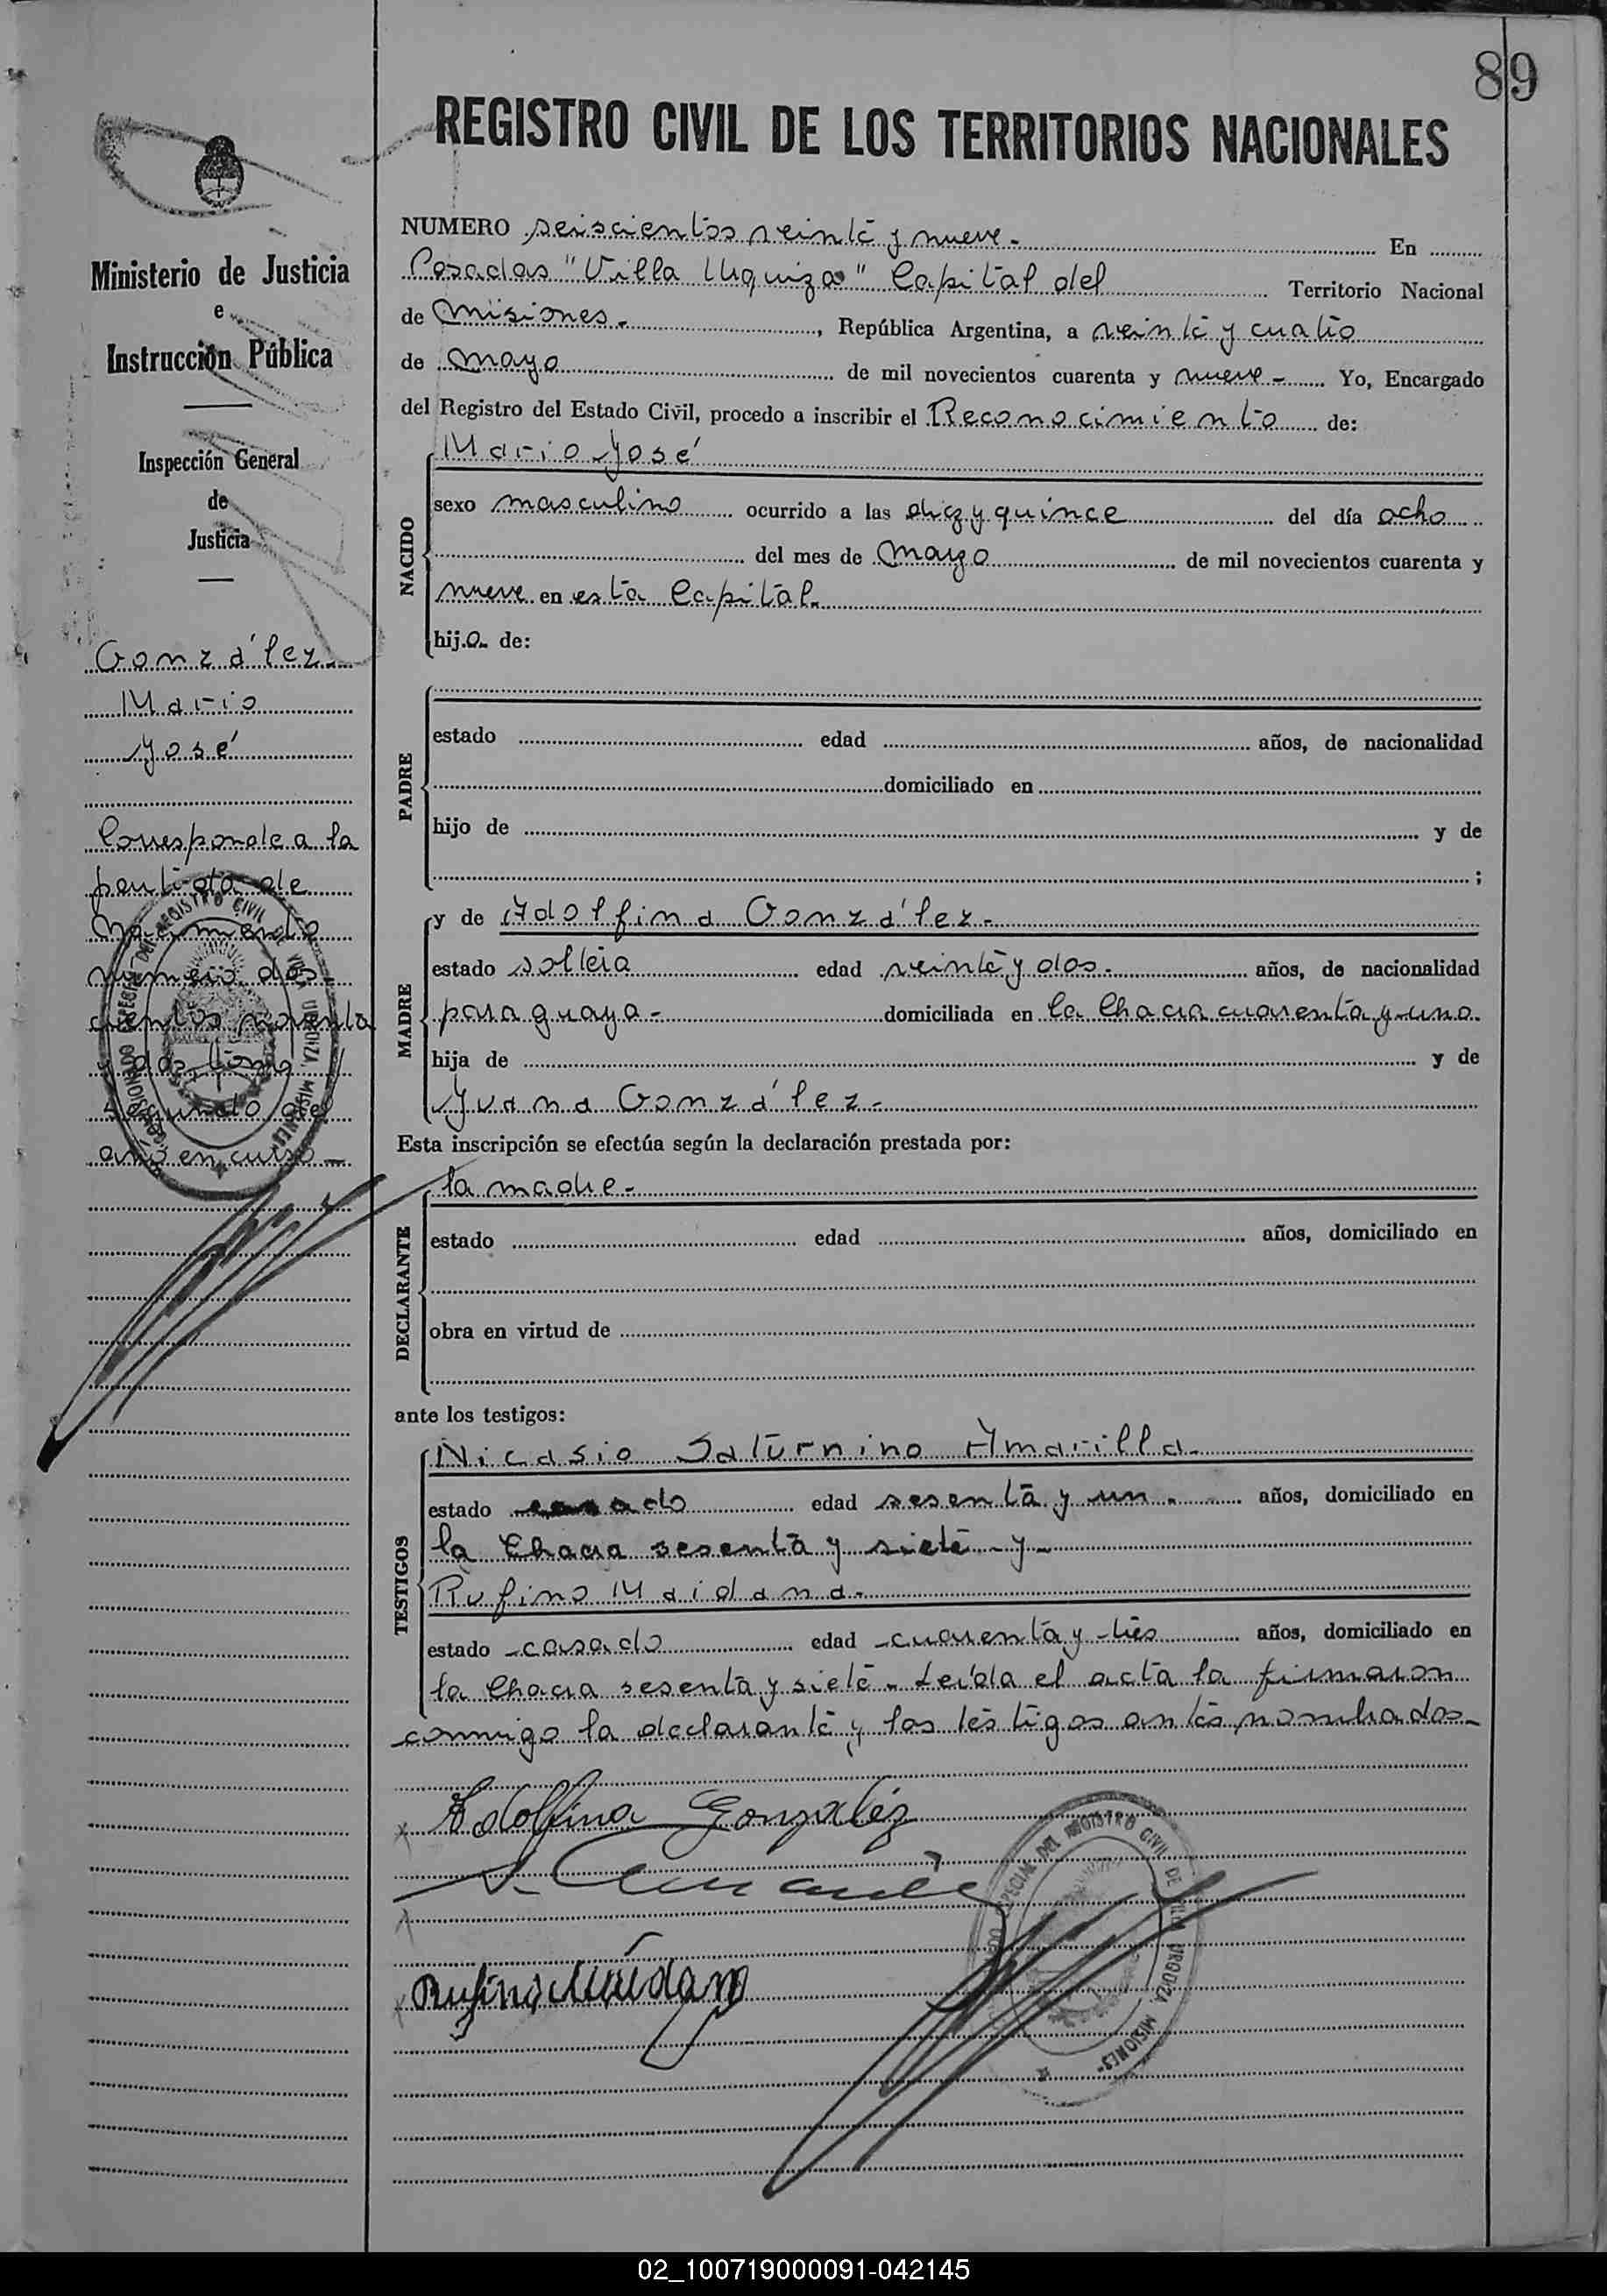 89
REGISTRO CIVIL DE LOS TERRITORIOS NACIONALES
Ministerio de Justicia
e
Instrucción Pública
Inspección General
de
Justicia
González
Mario
José
Corresponde a la
partida de
Nacimiento
número dos
cientos noventa
y dos, tomo
segundo del
año en curso -
COMISIONADO ESPECIAL DEL REGISTRO CIVIL VILLA URQUIZA, MISIONES
NUMERO seiscientos veinte y nueve.- En
Posadas "Villa Urquiza" Capital del Territorio Nacional
de Misiones.- , República Argentina, a veinte y cuatro
de mayo de mil novecientos cuarenta y nueve - Yo, Encargado
del Registro del Estado Civil, procedo a inscribir el Reconocimiento de:
Mario José
NACIDO
sexo masculino ocurrido a las diez y quince del día ocho
del mes de Marzo de mil novecientos cuarenta y
nueve en esta Capital.
hijo de:
PADRE
estado edad años, de nacionalidad
domiciliado en
hijo de y de
;
MADRE
y de Adolfina González.-
estado soltera edad veinte y dos. años, de nacionalidad
paraguaya- domiciliada en la Chacra cuarenta y uno.
hija de y de
Juana González.-
Esta inscripción se efectúa según la declaración prestada por:
la madre.-
DECLARANTE
estado edad años, domiciliado en
obra en virtud de
ante los testigos:
TESTIGOS
Nicasio Saturnino Amarilla.
estado casado edad sesenta y un. años, domiciliado en
la Chacra sesenta y siete - y-
Rufino Maidana.
estado casado edad cuarenta y tres años, domiciliado en
la Chacra sesenta y siete. Leída el acta la firmaron
conmigo la declarante y los testigos antes nombrados.-
Adolfina González
Rufino Maidana
ESPECIAL DEL REGISTRO CIVIL DE VILLA URQUIZA MISIONES
02_100719000091-042145